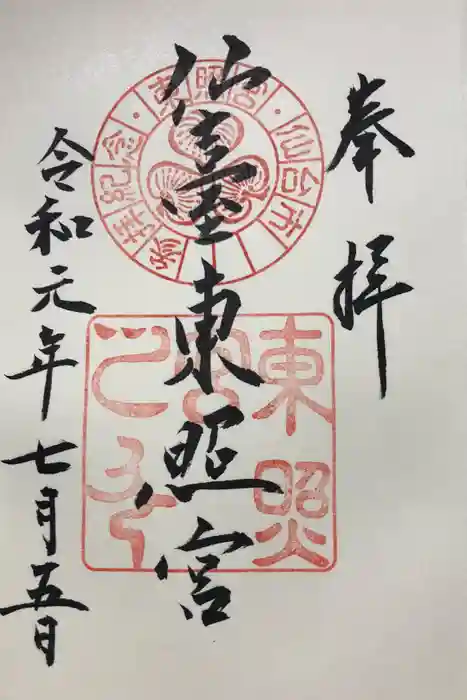 奉拝
仙臺東照宮
令和元年七月五日
東照宮・仙台市
参拝紀念
東照
宮